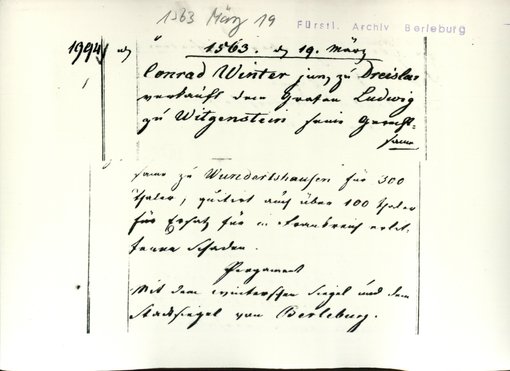 1563 März 19
Fürstl. Archiv Berleburg
1994
1563. d 19. März
Conrad Winter jung zu Dreislar
verkauft dem Grafen Ludwig
zu Witgenstein seine Gerecht-
same
same zu Wundertshausen für 300
Thaler, quitirt auch über 100 Thaler
für Ersatz für in Frankreich erlit-
tenen Schaden.
Pergament
Mit dem winterschen Siegel und dem
Stadtsiegel von Berleburg.